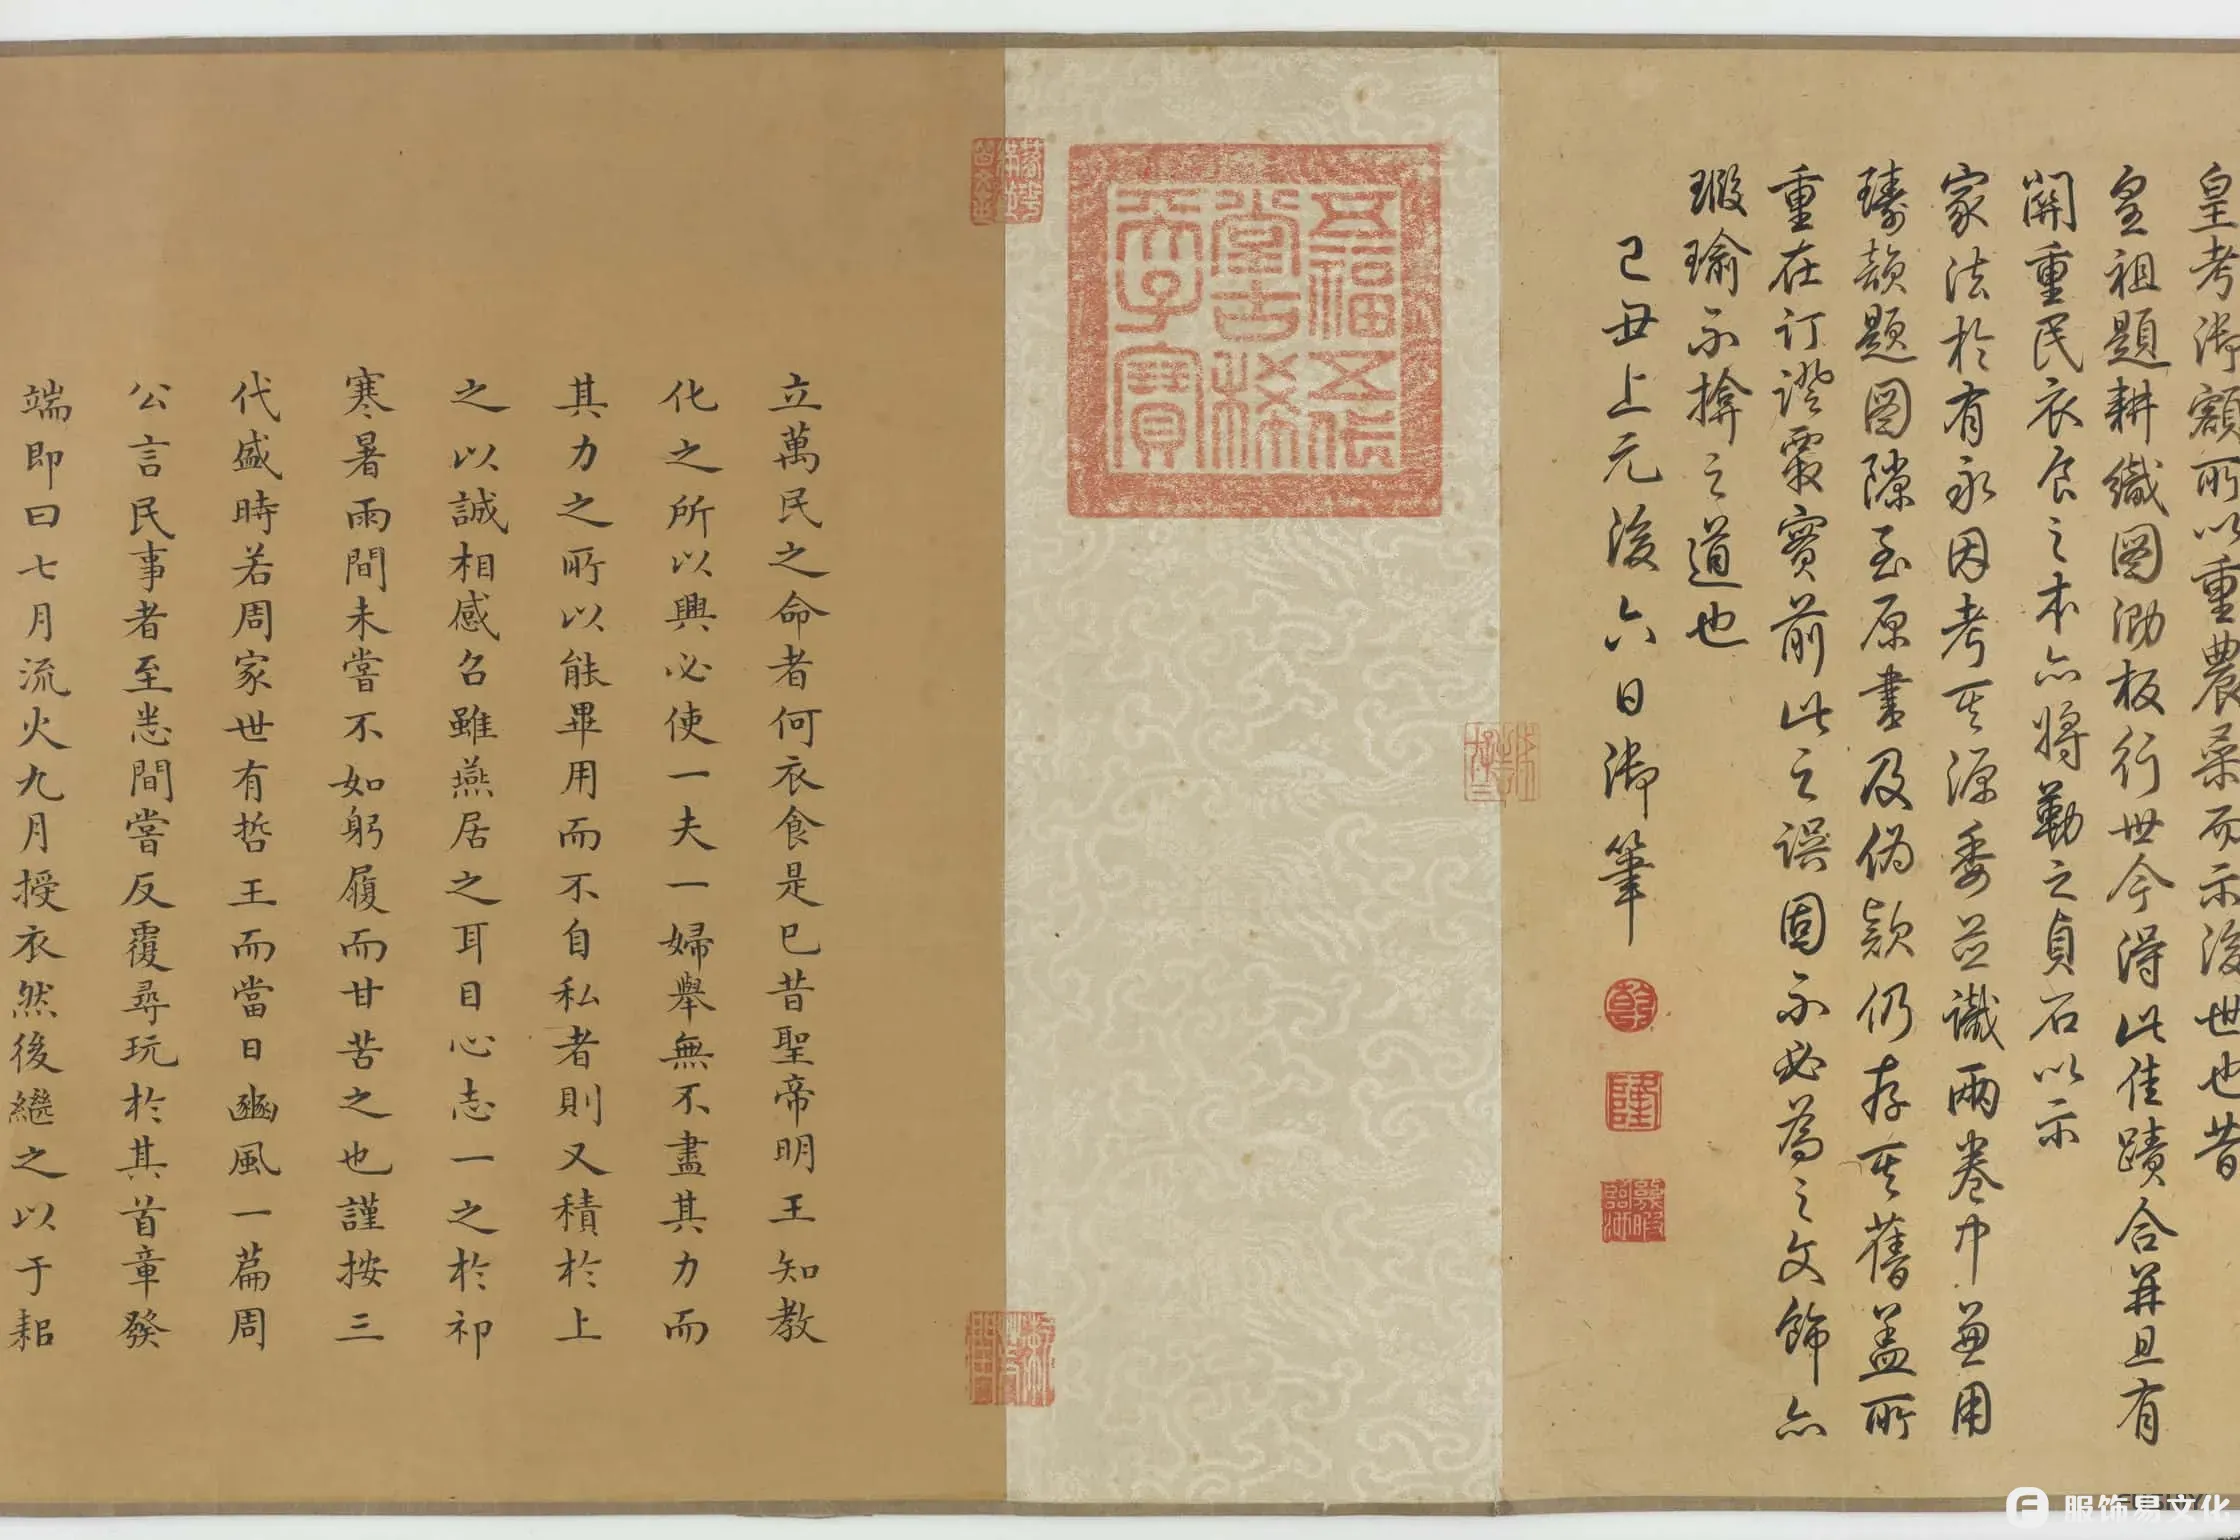 皇考御額所以重農桑而示後世也昔
皇祖題耕織圖泐板行世今得此佳蹟合并且有
關重民衣食之本亦將勒之貞石以示
家法於有永因考其源委並識兩卷中兼用
璘韻題圖隙至原書及偽款仍存其舊蓋所
重在訂證覈實前此之誤固不必為之文飾亦
瑕瑜不揜之道也
己丑上元後六日御筆
乾
隆
幾暇臨池
五福五代
堂古稀
天子寶
立萬民之命者何衣食是已昔聖帝明王知教
化之所以興必使一夫一婦舉無不盡其力而
其力之所以能畢用而不自私者則又積於上
之以誠相感召雖燕居之耳目心志一之於祁
寒暑雨間未嘗不如躬履而甘苦之也謹按三
代盛時若周家世有哲王而當日豳風一篇周
公言民事者至悉間嘗反覆尋玩於其首章發
端即曰七月流火九月授衣然後繼之以于耜
服饰易文化